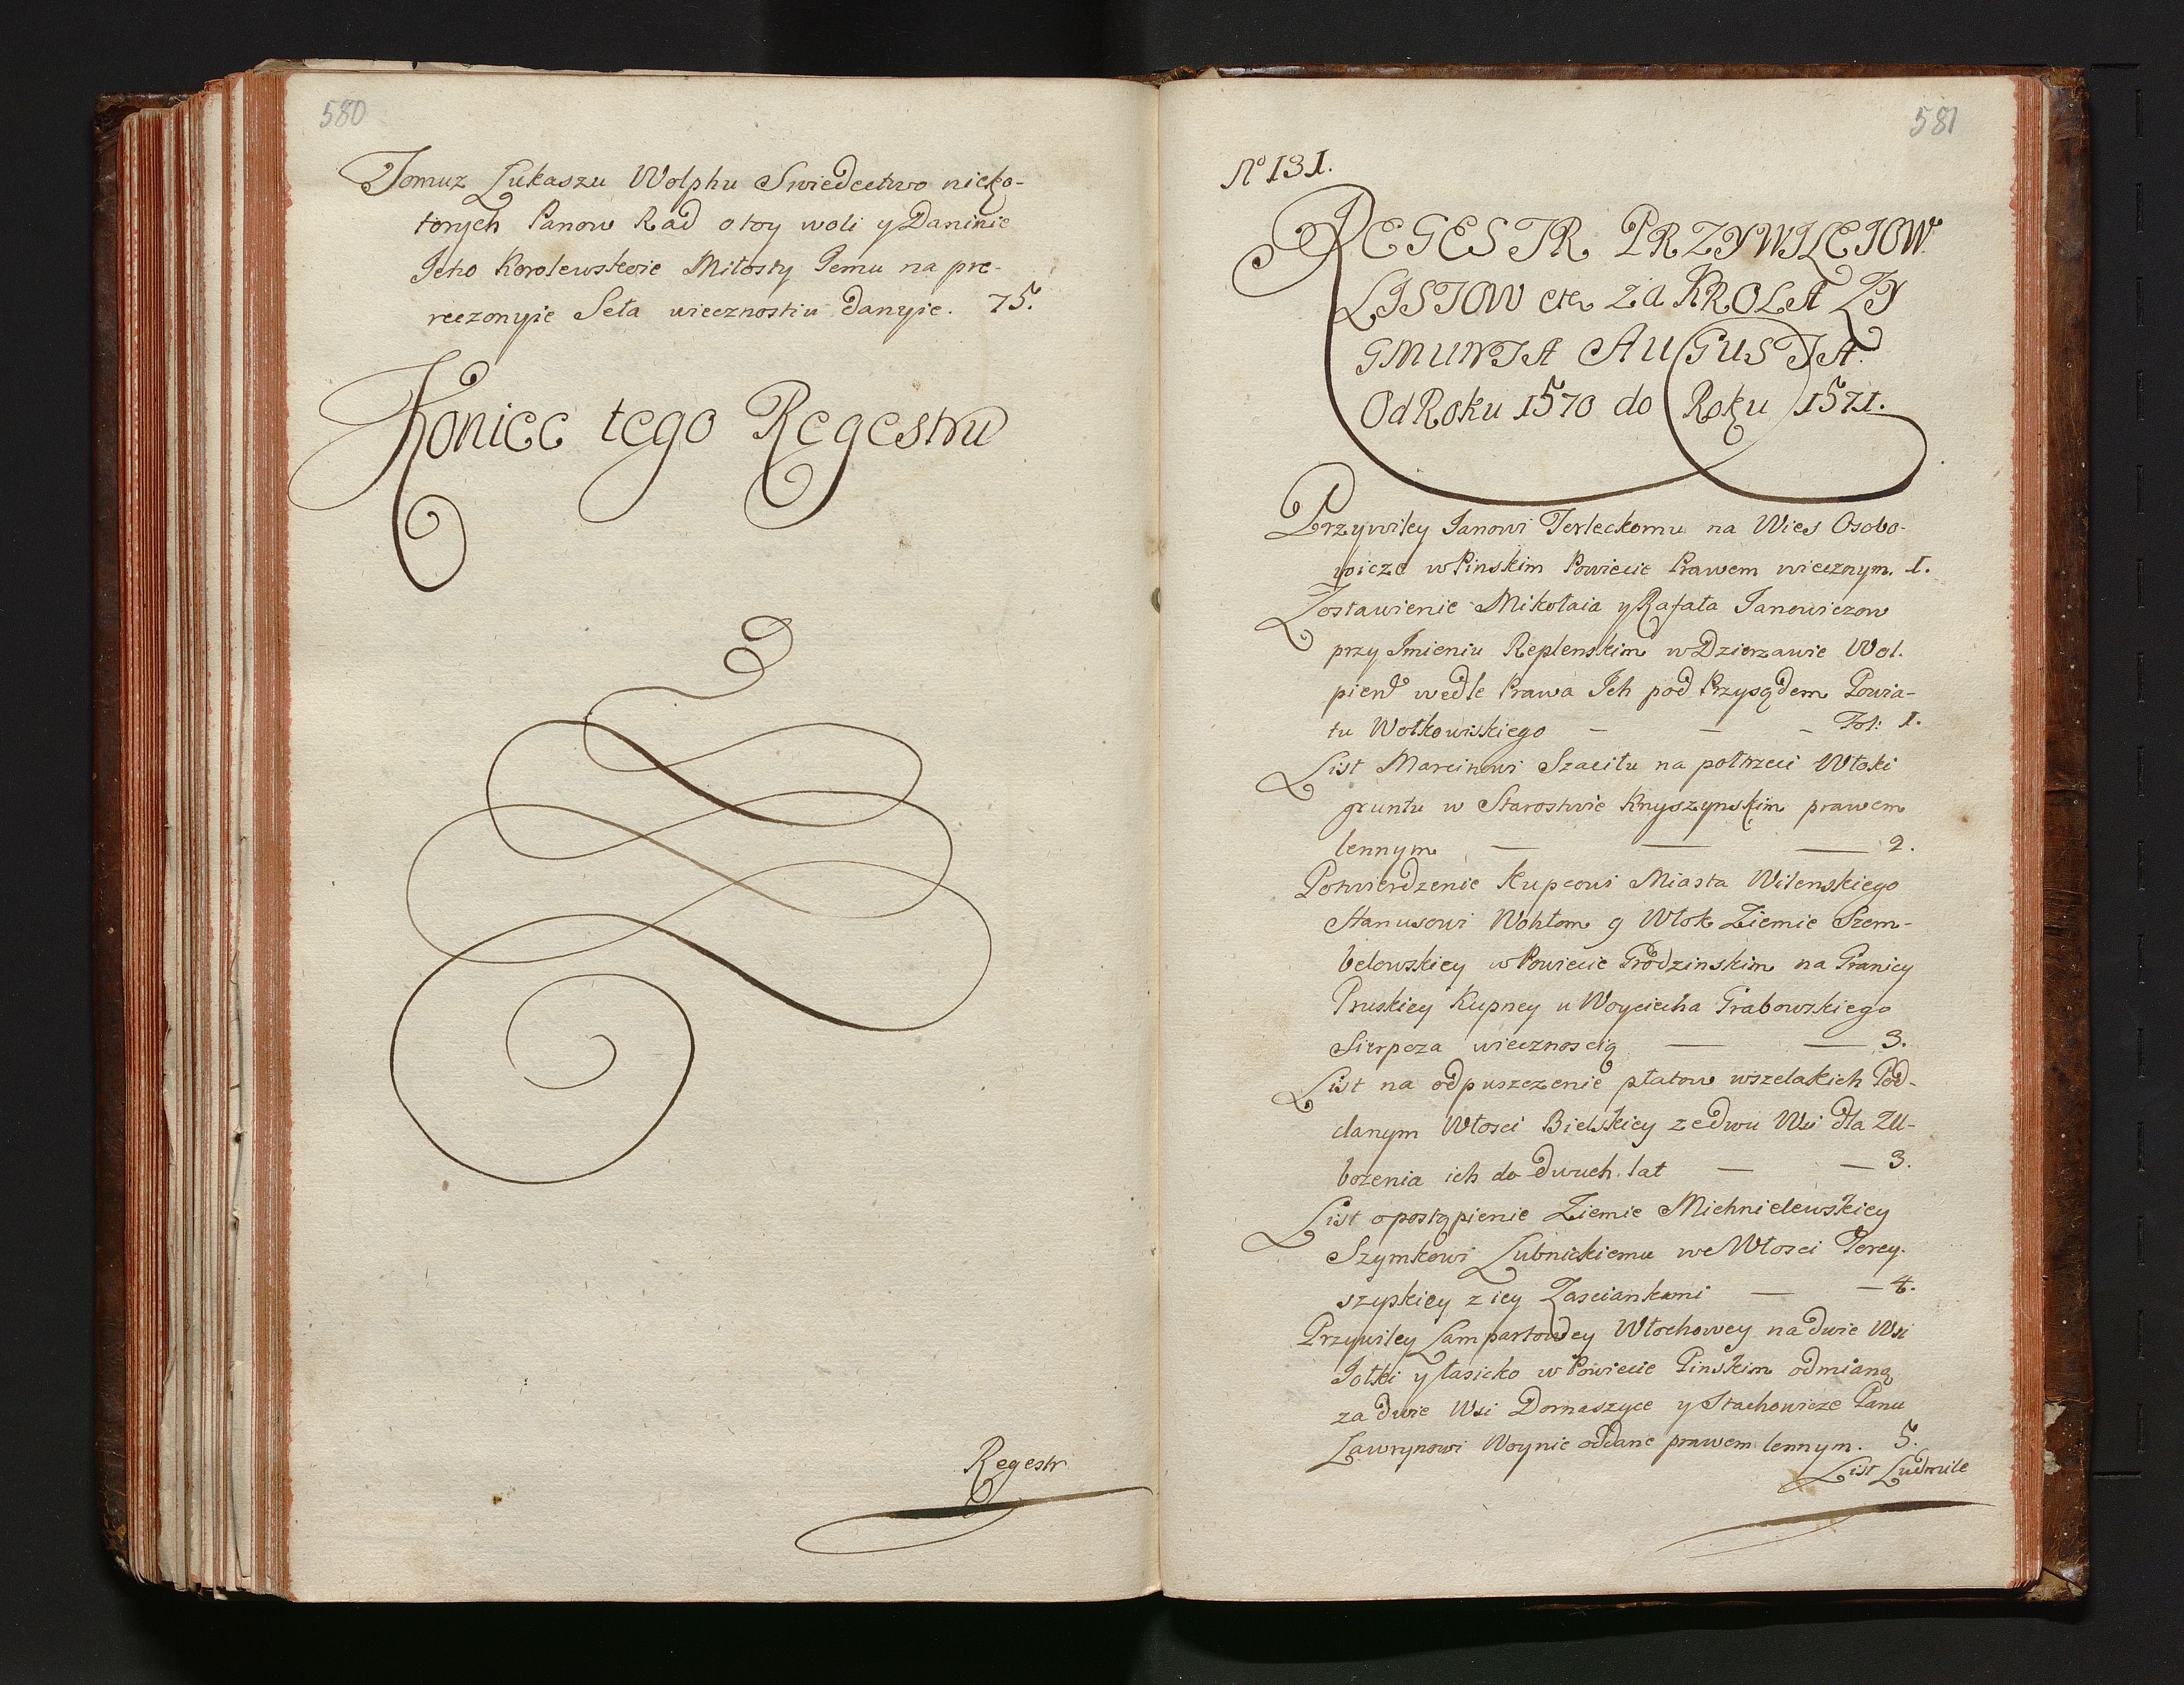 580
Tomuz Łukaszu Wolphu Swiedectwo nieko-
torych Panow Rad o toy woli y Daninie
Jeho Korolewskoie Miłosty Jemu na pre-
reczonyie Seła wiecznostiu danyie. 75.
Koniec tego Regestru
Regestr
581
No 131.
REGESTR PRZYWILEIOW
LISTOW etc za KROLA ZY
GMUNTA AUGUSTA.
Od Roku 1570 do Roku 1571.
Przywiley Janowi Terleckomu na Wies Osobo-
wicze w Pinskim Powiecie Prawem wiecznym. 1.
Zostawienie Mikołaia y Rafała Janowiczow
przy Imieniu Replenskim w Dzierzawie Woł.
pien wedle Prawa Ich pod Przysądem Powia-
tu Wołkowiskiego — — — Fol: 1.
List Marcinowi Szaciłu na połtrzeci Włoki
gruntu w Starostwie Knyszynskim prawem
lennym — — — 2.
Potwierdzenie Kupcowi Miasta Wilenskiego
Stanusowi Wohłom 9 Włok Ziemie Szem-
belowskiey w Powiecie Grodzinskim na Granicy
Pruskiey Kupney u Woyciecha Grabowskiego
Sierpcza wiecznoscią — — 3.
List na odpuszczenie płatow wszelakich Pod-
danym Włosci Bielskiey ze dwu Wsi dla Zu-
bożenia ich do dwuch lat — — 3.
List o postąpienie Ziemie Michnielewskiey
Szymkowi Lubnickiemu we Włosci Perey-
szypkiey z iey Zasciankami — — 4.
Przywiley Lampartowey Włochowey na dwie Wsi
Jołki y Łasicko w Powiecie Pinskim odmianą
za dwie Wsi Domaszyce y Stachowicze Panu
Ławrynowi Woynie oddane prawem lennym. 5.
List Ludmile